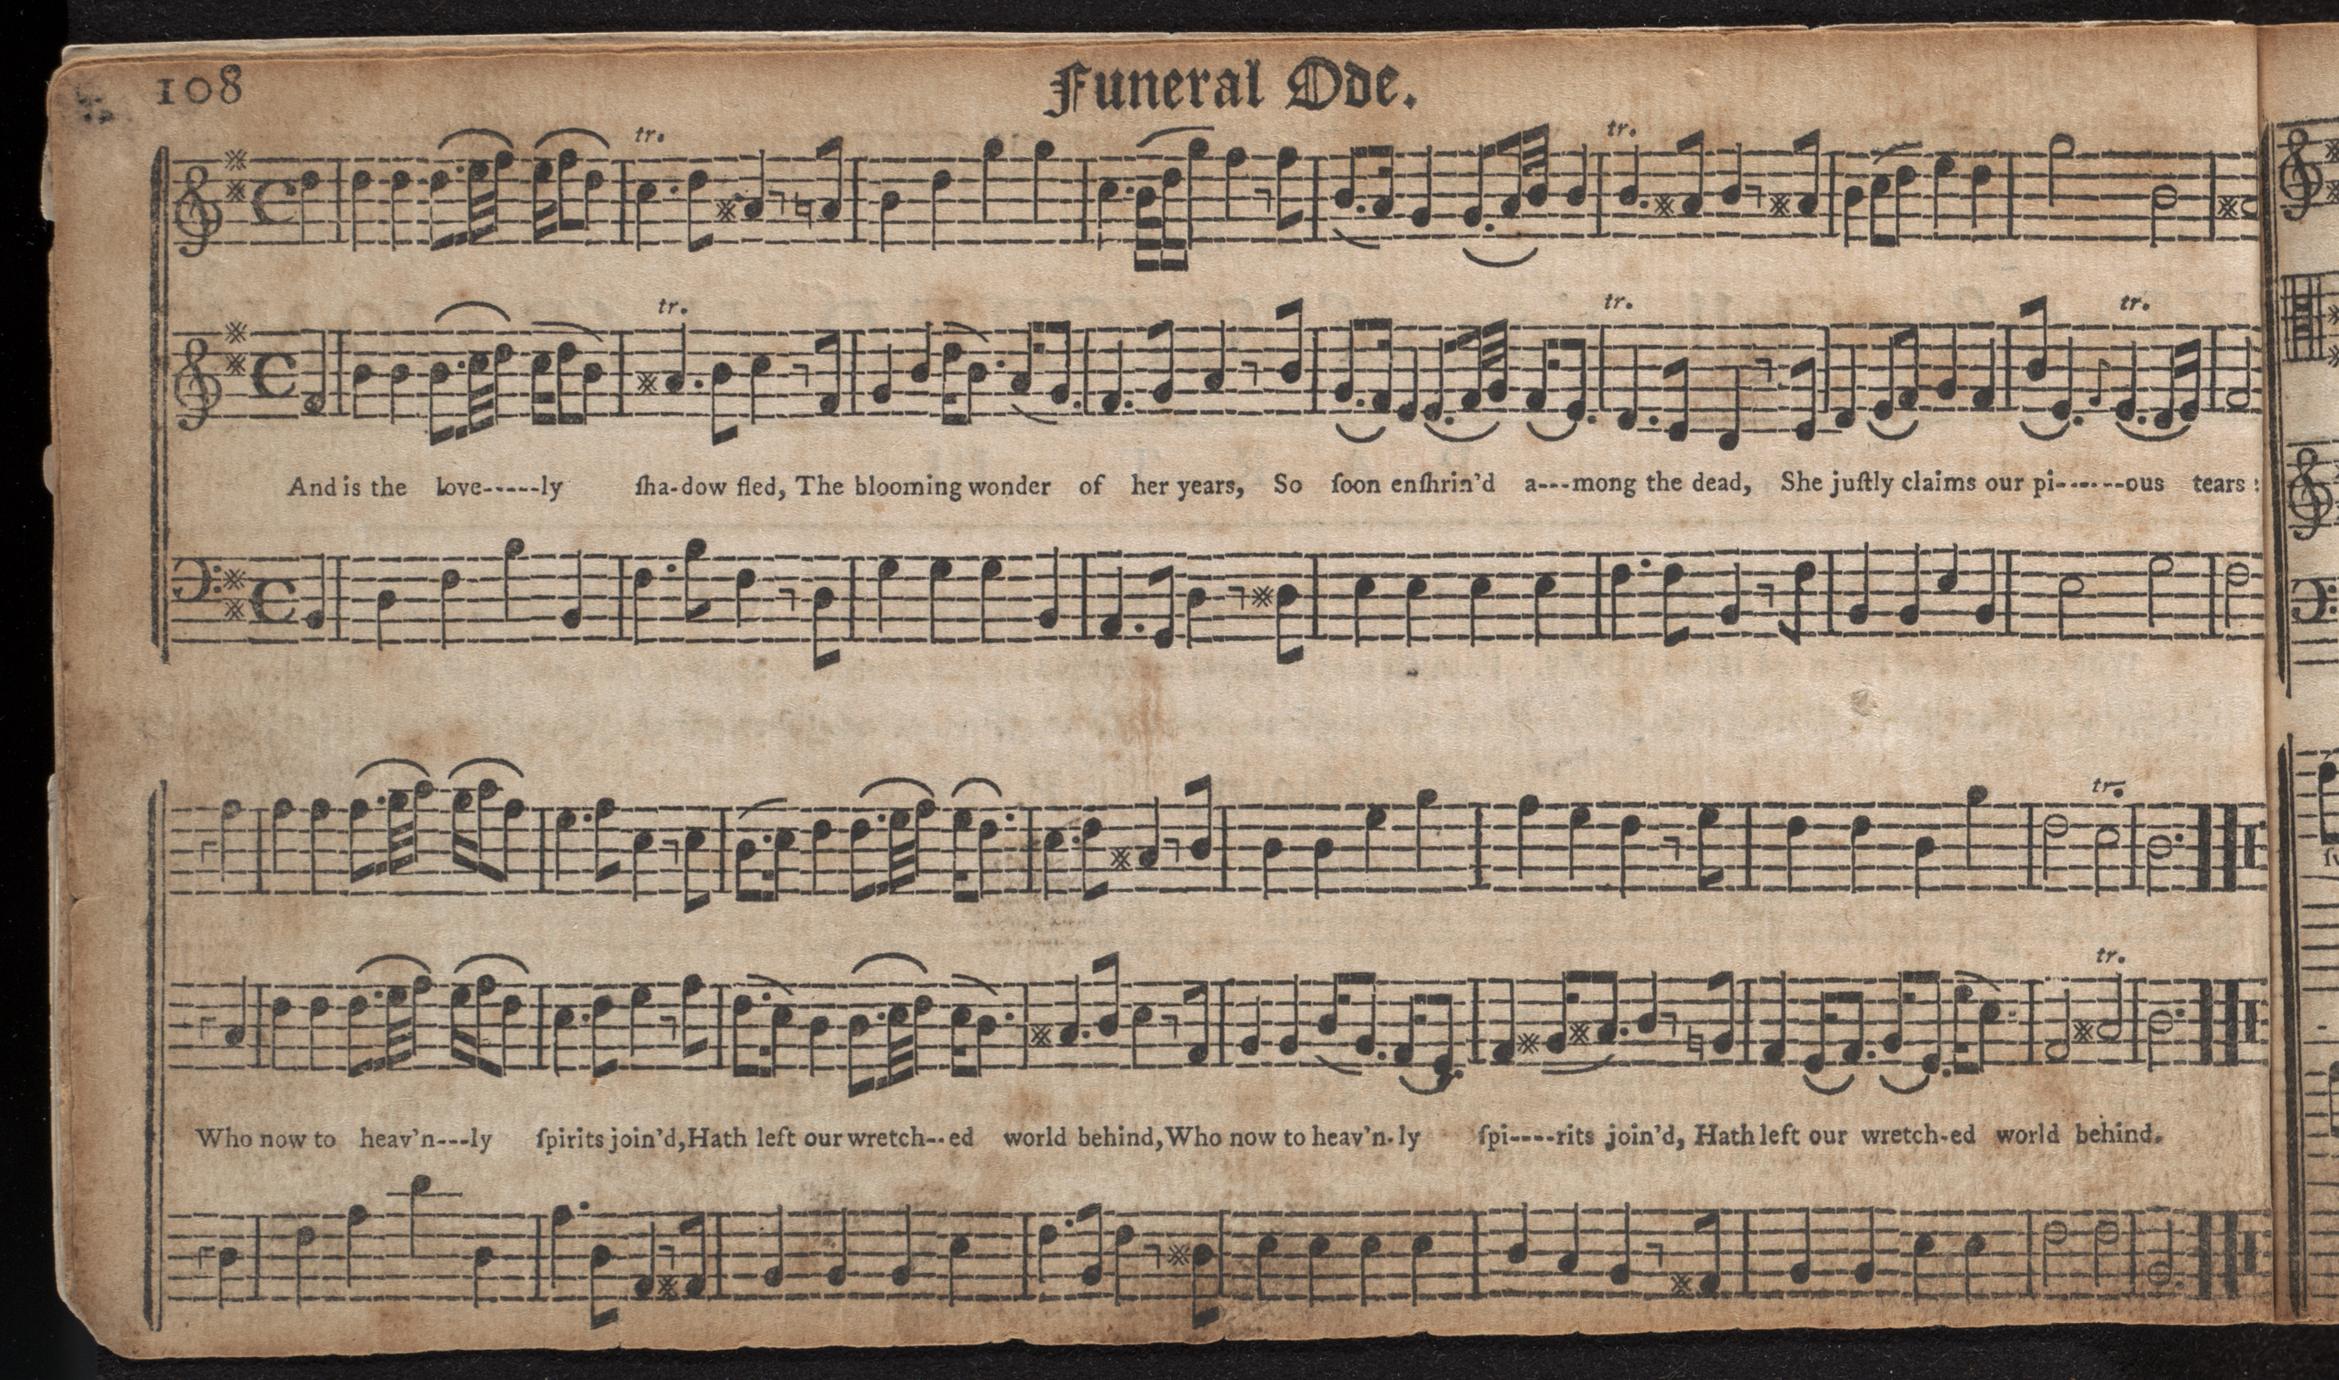 108
Funeral Ode.
tr.
tr.
tr.
tr.
tr.
And is the love-----ly ſha-dow fled, The blooming wonder of her years, So ſoon enſhrin'd a---mong the dead, She juſtly claims our pi------ous tears :
tr.
tr.
Who now to heav'n---ly ſpirits join'd, Hath left our wretch--ed world behind, Who now to heav'n-ly ſpi----rits join'd, Hath left our wretch-ed world behind.